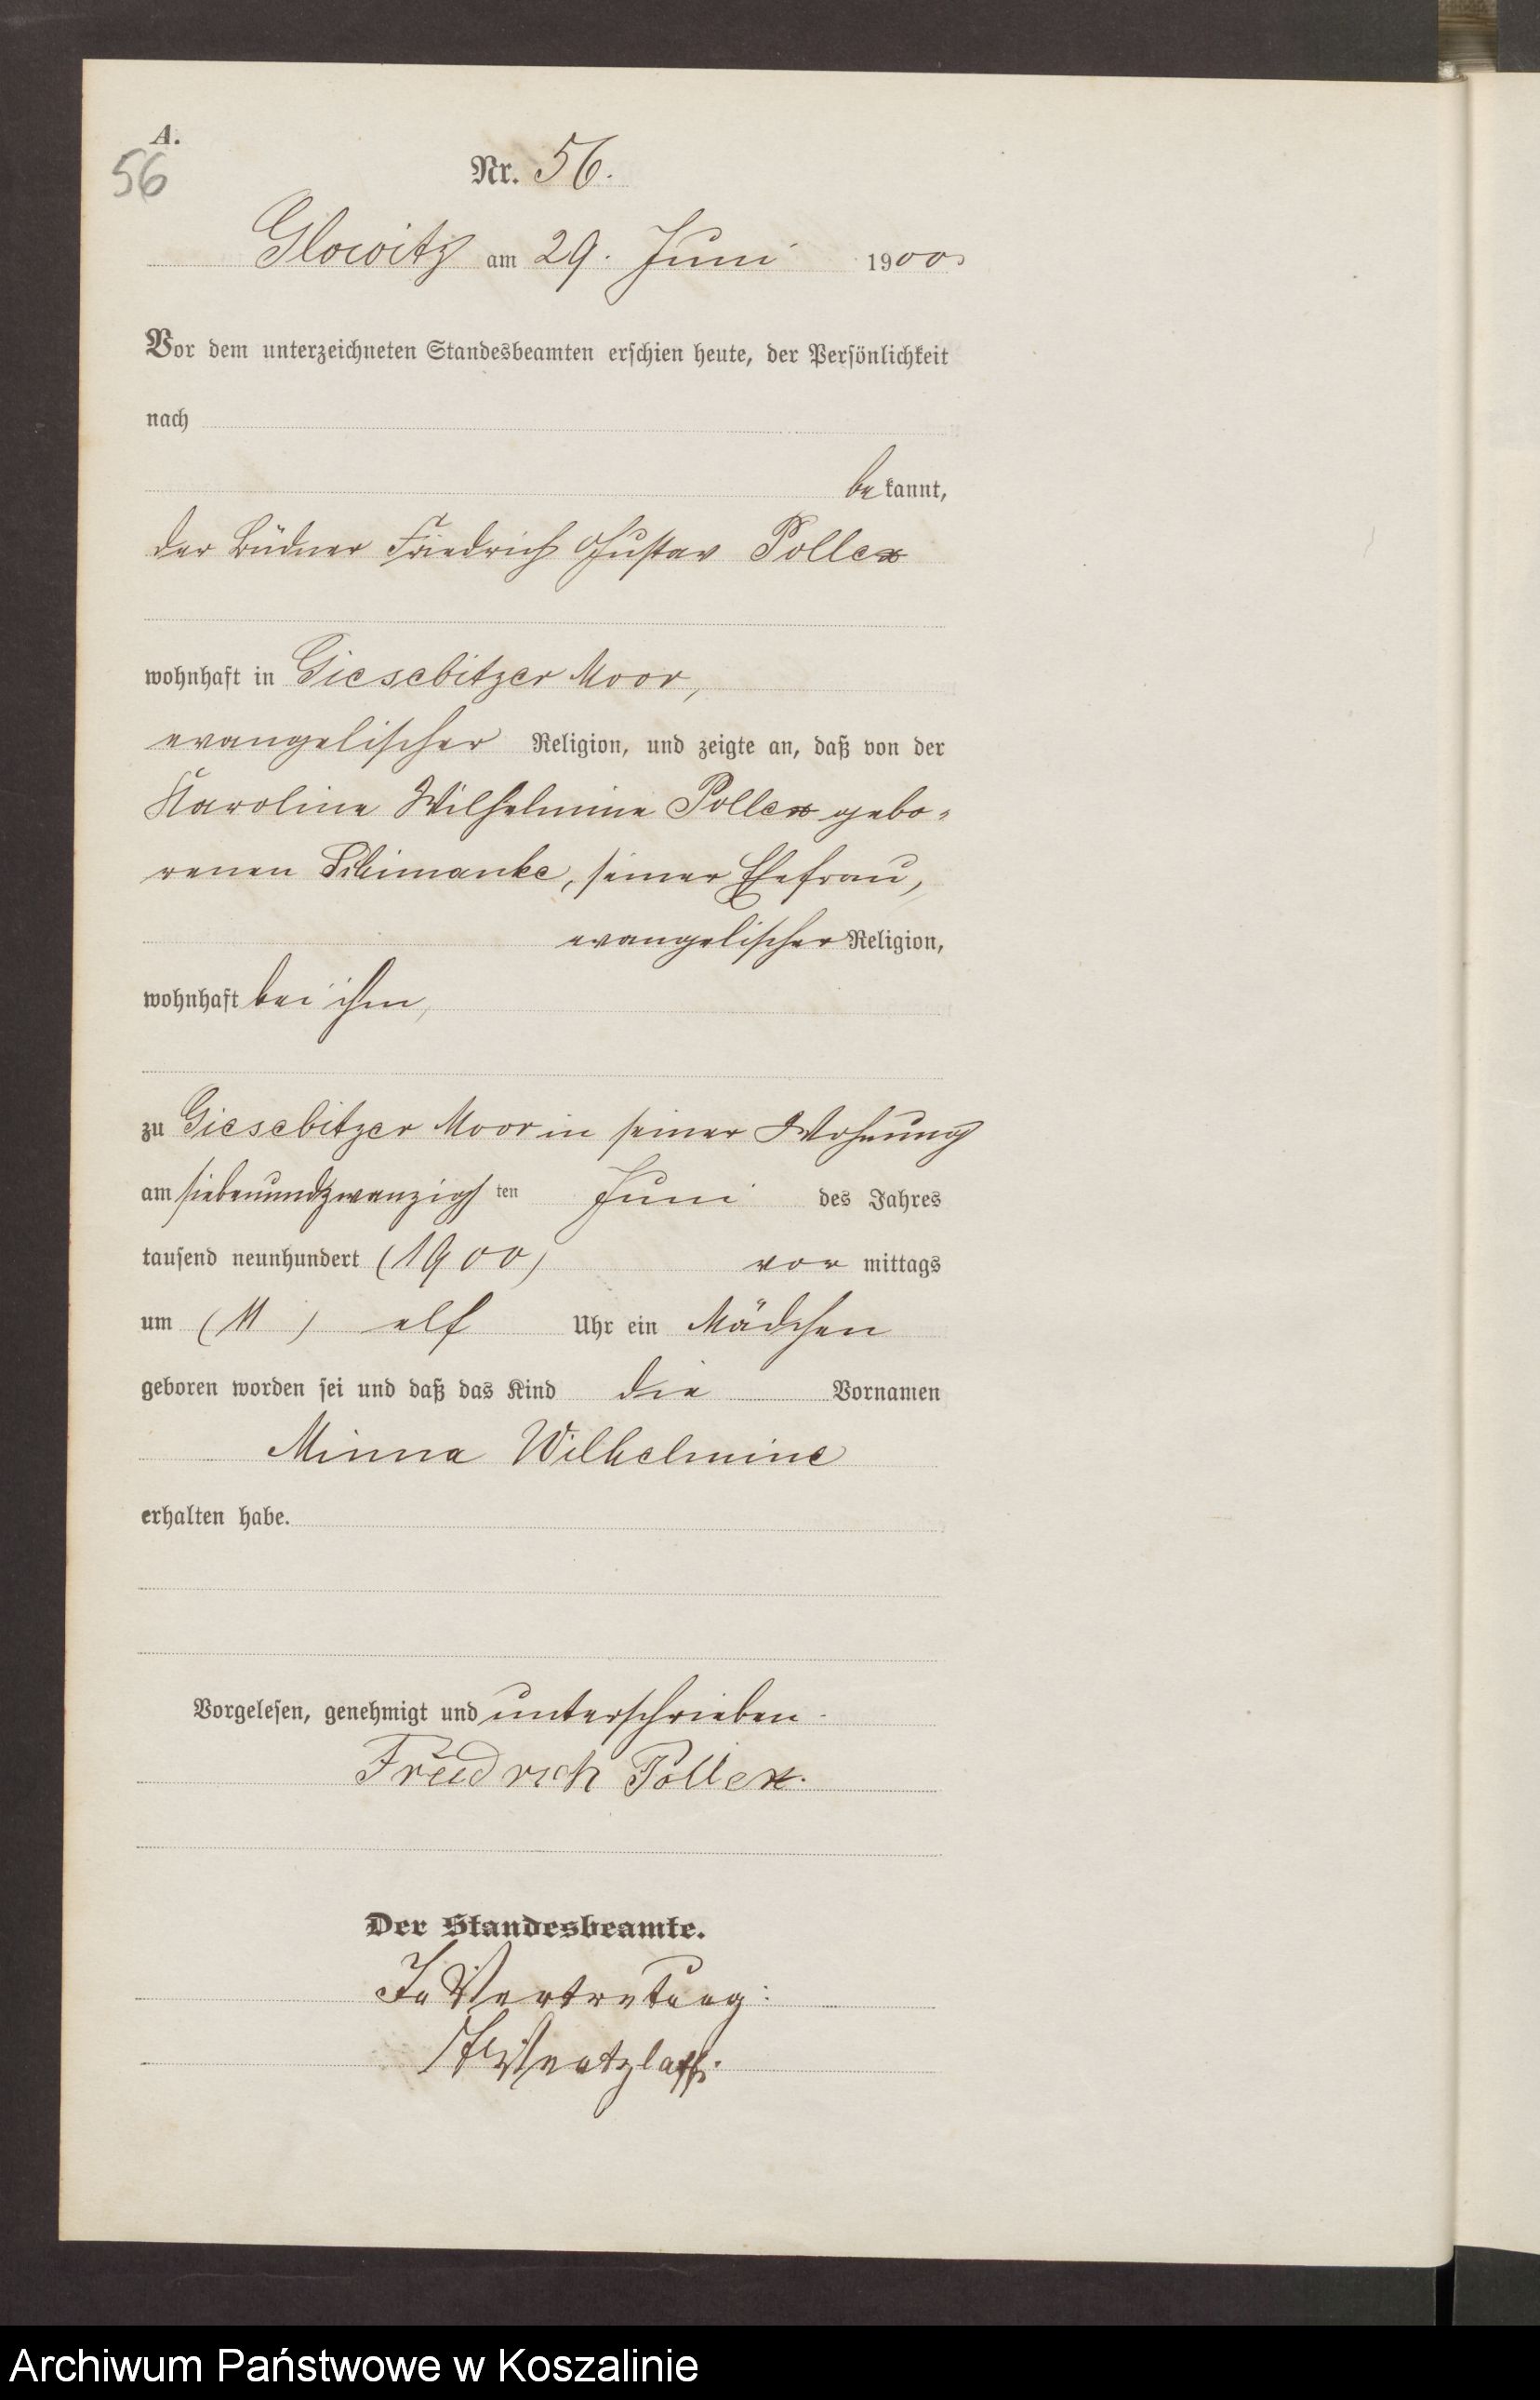 A.
56
Nr. 56.
Glowitz am 29. Juni 1900
Vor dem unterzeichneten Standesbeamten erschien heute, der Persönlichkeit
nach
bekannt,
der Büdner Friedrich Gustav Pollex
wohnhaft in Giesebitzer Moor,
evangelischer Religion, und zeigte an, daß von der
Karoline Wilhelmine Pollex gebo-
renen Schimanke, seiner Ehefrau,
evangelischer Religion,
wohnhaft bei ihm,
zu Giesebitzer Moor in seiner Wohnung
am siebenundzwanzigsten Juni des Jahres
tausend neunhundert (1900) vor mittags
um (11) elf Uhr ein Mädchen
geboren worden sei und daß das Kind die Vornamen
Minna Wilhelmine
erhalten habe.
Vorgelesen, genehmigt und unterschrieben.
Friedrich Pollex.
Der Standesbeamte.
In Vertretung:
Archiwum Państwowe w Koszalinie